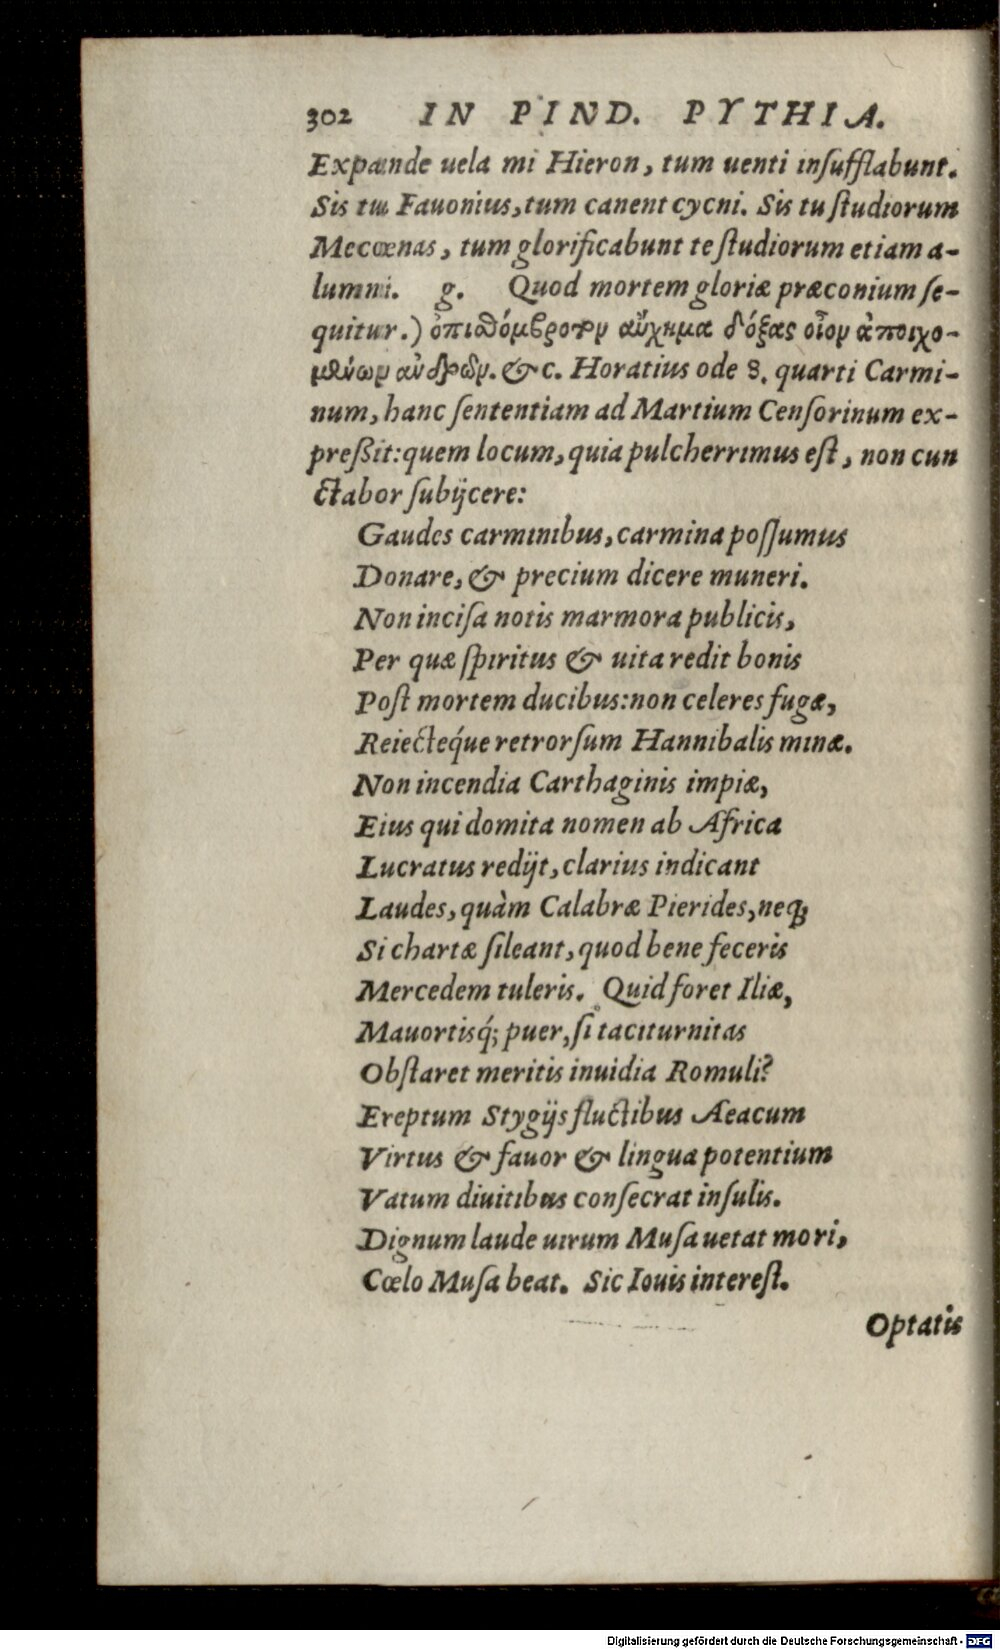 302 IN PIND. PYTHIA.
Expande uela mi Hieron, tum uenti insufflabunt.
Sis tu Fauonius, tum canent cycni. Sis tu studiorum
Mecœnas, tum glorificabunt te studiorum etiam a-
lumni. g. Quod mortem gloriæ præconium se-
quitur.) ὀπιθόμβροτον αὔχημα δόξας οἷον ἀποιχο-
μένων ἀνδρῶν. &c. Horatius ode 8. quarti Carmi-
num, hanc sententiam ad Martium Censorinum ex-
preßit: quem locum, quia pulcherrimus est, non cun
ctabor subijcere:
Gaudes carminibus, carmina possumus
Donare, & precium dicere muneri.
Non incisa notis marmora publicis,
Per quæ spiritus & uita redit bonis
Post mortem ducibus: non celeres fugæ,
Reiectéque retrorsum Hannibalis minæ.
Non incendia Carthaginis impiæ,
Eius qui domita nomen ab Africa
Lucratus redijt, clarius indicant
Laudes, quàm Calabræ Pierides, neq;
Si chartæ sileant, quod bene feceris
Mercedem tuleris. Quid foret Iliæ,
Mauortisq́; puer, si taciturnitas
Obstaret meritis inuidia Romuli?
Ereptum Stygijs fluctibus Aeacum
Virtus & fauor & lingua potentium
Vatum diuitibus consecrat insulis.
Dignum laude uirum Musa uetat mori,
Cœlo Musa beat. Sic Iouis interest.
Optatis
Digitalisierung gefördert durch die Deutsche Forschungsgemeinschaft - DFG